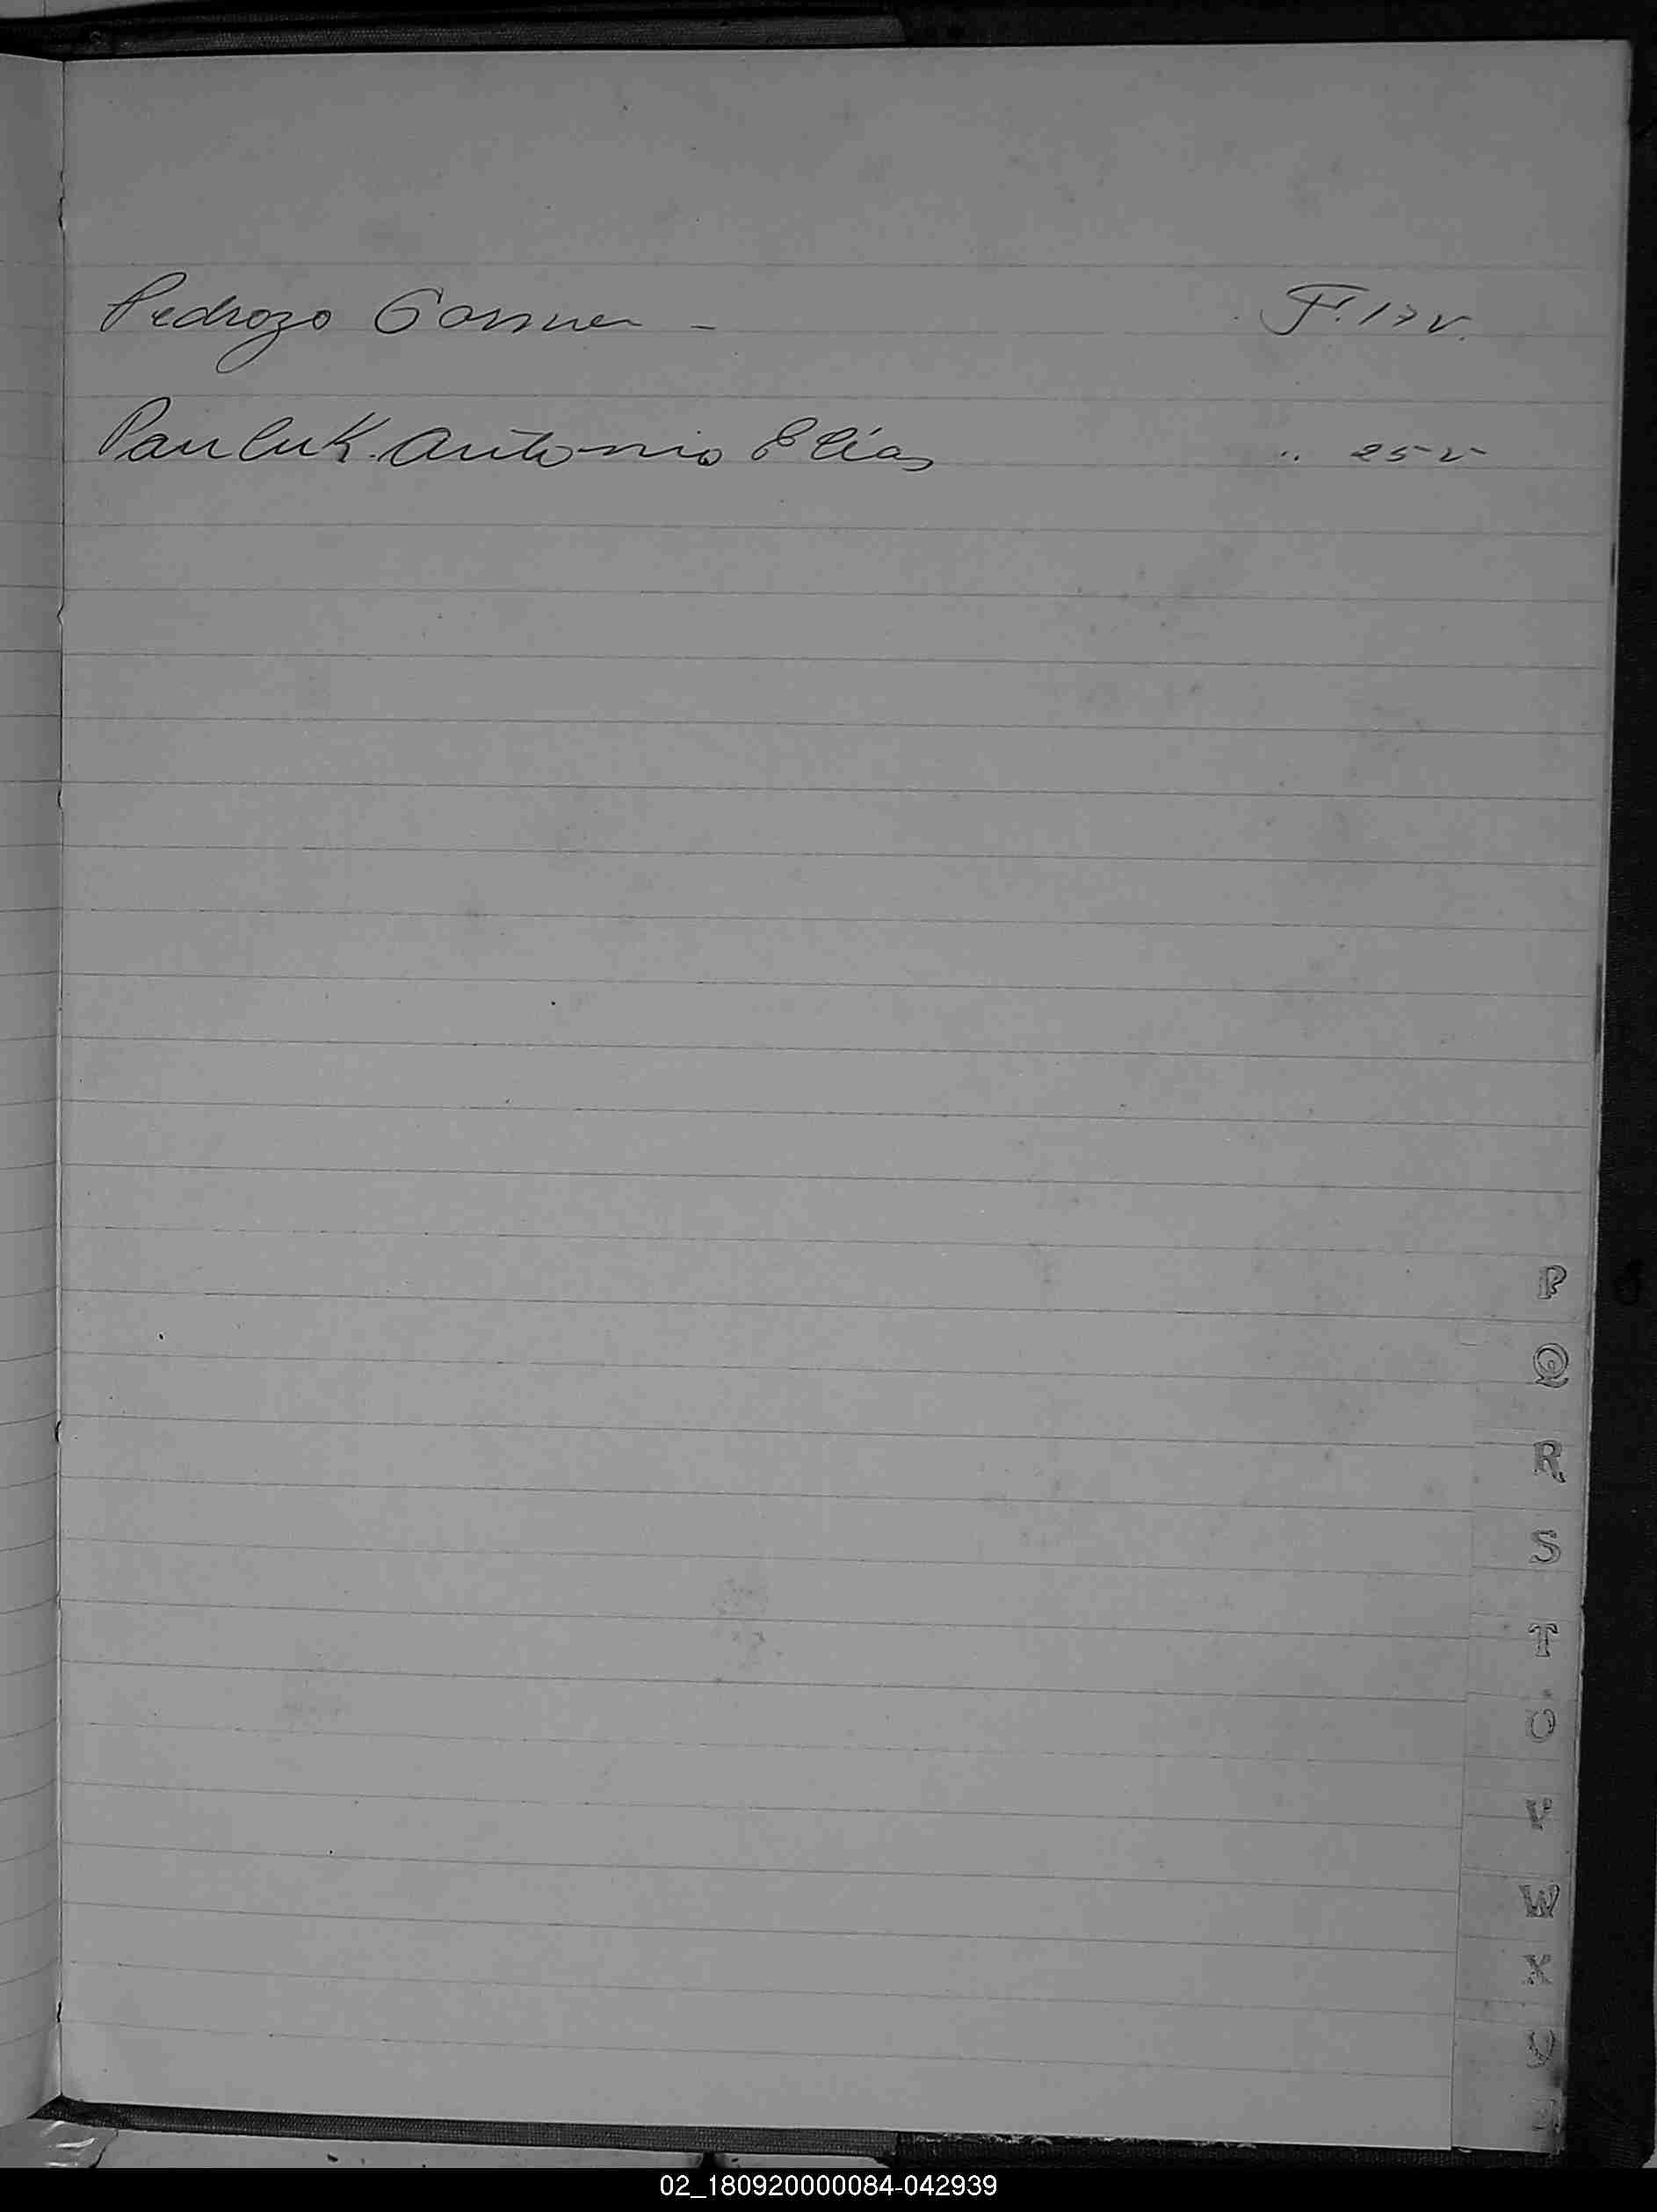 Pedrozo - F. 17 v.
Pauluk Antonio Elías .. 25 v
P
Q
R
S
T
V
W
X
02_180920000084-042939